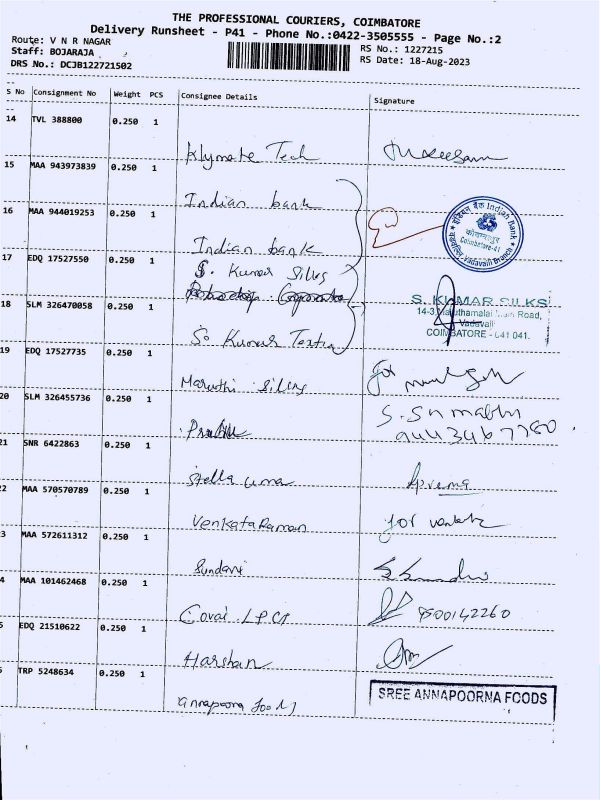 THE PROFESSIONAL COURIERS, COIMBATORE
Delivery Runsheet - P41 - Phone No.:0422-3505555 - Page No.:2
Route: V N R NAGAR
RS No.: 1227215
Staff: BOJARAJA
RS Date: 18-Aug-2023
DRS No.: DCJB122721502
S No Consignment No Weight PCS Consignee Details Signature
14 TVL 388800 0.250 1
Klymate Tech
15 MAA 943973839 0.250 1
Indian bank
16 MAA 944019253 0.250 1
Indian bank
इंडियन बैंक Indian Bank
कोयम्बत्तूर
Coimbatore-41
Vadavalli Branch
17 EDQ 17527550 0.250 1
S. Kumar Silks
S. KUMAR SILKS
14-3, Main Road,
Vadavalli
COIMBATORE - 641 041.
18 SLM 326470058 0.250 1
Kumar
19 EDQ 17527735 0.250 1
Maruthi Silks
for
20 SLM 326455736 0.250 1
Prabhu
21 SNR 6422863 0.250 1
Stella uma
Prema
2 MAA 570570789 0.250 1
Venkata Raman
for
3 MAA 572611312 0.250 1
Sundari
4 MAA 101462468 0.250 1
Covai
9500142260
5 EDQ 21510622 0.250 1
Harshan
TRP 5248634 0.250 1
annapoorna
SREE ANNAPOORNA FOODS